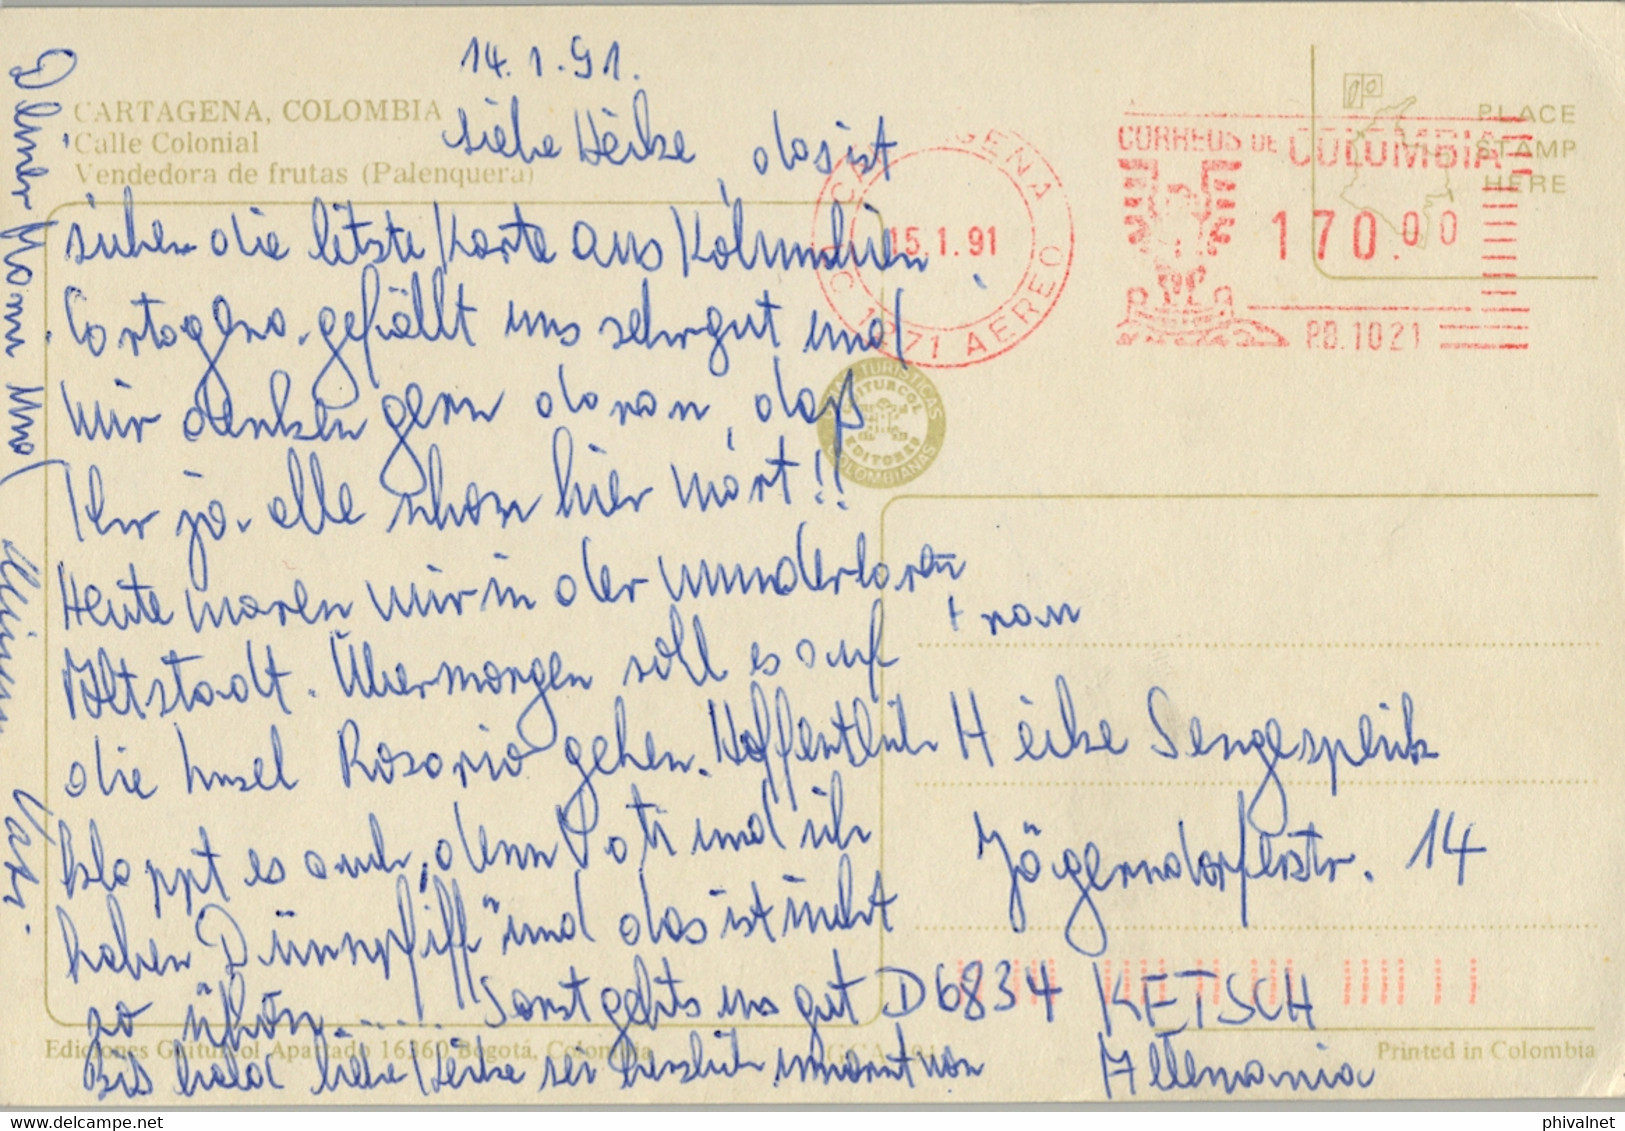 14.1.91.
CARTAGENA, COLOMBIA
Calle Colonial
Vendedora de frutas (Palenquera)
liebe Heike, das ist
sicher die letzte Karte aus Kolumbien.
Cartagena gefällt uns sehr gut und
wir denken gern daran, daß
Ihr ja alle schon hier wart!!
Heute waren wir in der wunderbaren
Altstadt. Übermorgen soll es auf
die Insel Rosario gehen. Hoffentlich
klappt es auch, denn Vati und ich
haben "Dünnpfiff" und das ist nicht
so schön......! Sonst gehts uns gut
Bis bald liebe Heike sei herzlich umarmt von
Deiner Mami und
Deinem Vati.
CORREOS DE COLOMBIA
170.00
PB.1021
CARTAGENA
15.1.91
1271 AEREO
PLACE
STAMP
HERE
TURISTICAS
COLOMBIANAS
GUITURCOL
EDITORES
Frau
Heike Sengespeick
Jägerndorferstr. 14
D6834 KETSCH
Allemania
Ediciones Guiturcol Apartado 16360 Bogotá, Colombia
Printed in Colombia
phivalnet